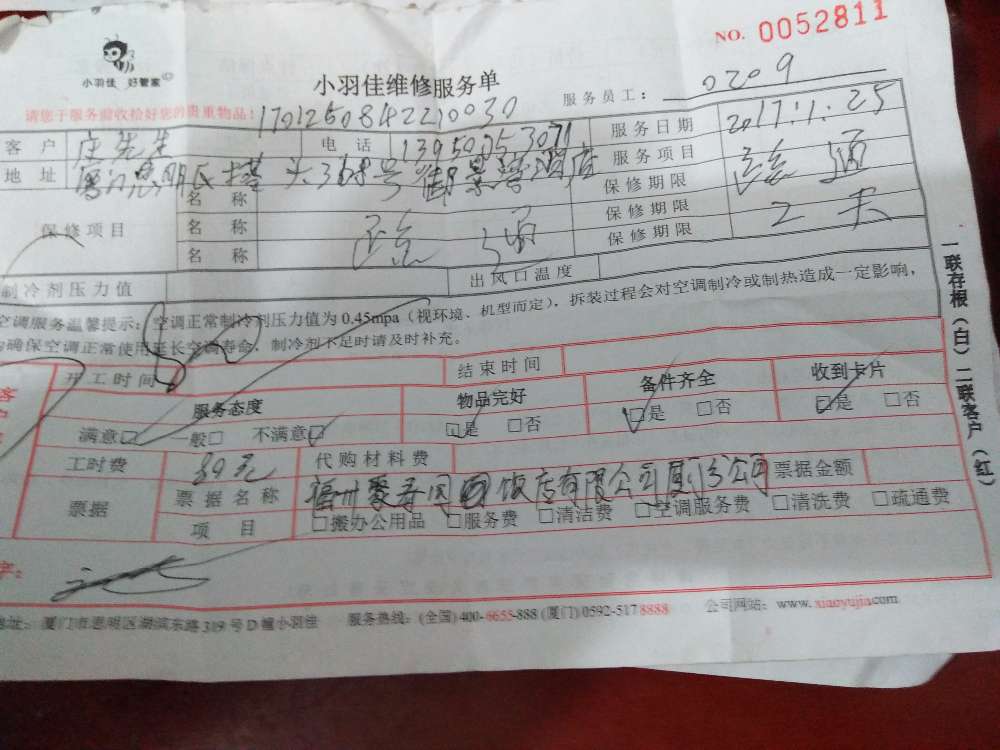 NO. 0052811
小羽佳 好管家
小羽佳维修服务单
服务员工： 0209
请您于服务前收拾好您的贵重物品！
1701250842210030
客户 庄先生 电话 服务日期 2017.1.25
地址 厦门思明区塔头368号 酒店 服务项目 疏通
保修项目 名称 保修期限
名称 疏通 保修期限 2天
名称 保修期限
制冷剂压力值 出风口温度
空调服务温馨提示：空调正常制冷剂压力值为0.45mpa（视环境、机型而定），拆装过程会对空调制冷或制热造成一定影响，
确保空调正常使用延长空调寿命，制冷剂不足时请及时补充。
开工时间 结束时间
服务态度 物品完好 备件齐全 收到卡片
满意□ 一般□ 不满意□ □是 □否 □是 □否 □是 □否
工时费 80元 代购材料费
票据 票据名称 福州聚春园 饭店有限公司厦门分公司 票据金额
项目 □搬办公用品 □服务费 □清洁费 □空调服务费 □清洗费 □疏通费
字：
地址：厦门市思明区湖滨东路319号D幢小羽佳 服务热线：(全国)400-6655-888 (厦门)0592-5178888 公司网站：www.xiaoyujia.com
一联存根（白）二联客户（红）